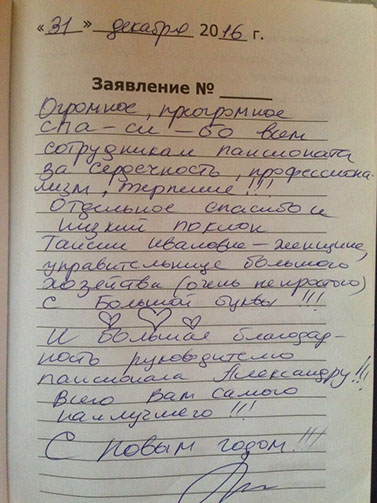 «31» декабря 2016 г.
Заявление № ____
Огромное, преогромное
спа-си-бо всем
сотрудникам пансионата
за сердечность, профессиона-
лизм, терпение !!!
Отдельное спасибо и
низкий поклон
Таисии Ивановне – женщине,
управительнице большого
хозяйства (очень непростого)
с Большой буквы !!!
И Большая благодар-
ность руководителю
пансионата Александру!!!
Всего Вам самого
наилучшего !!!
С Новым годом!!!